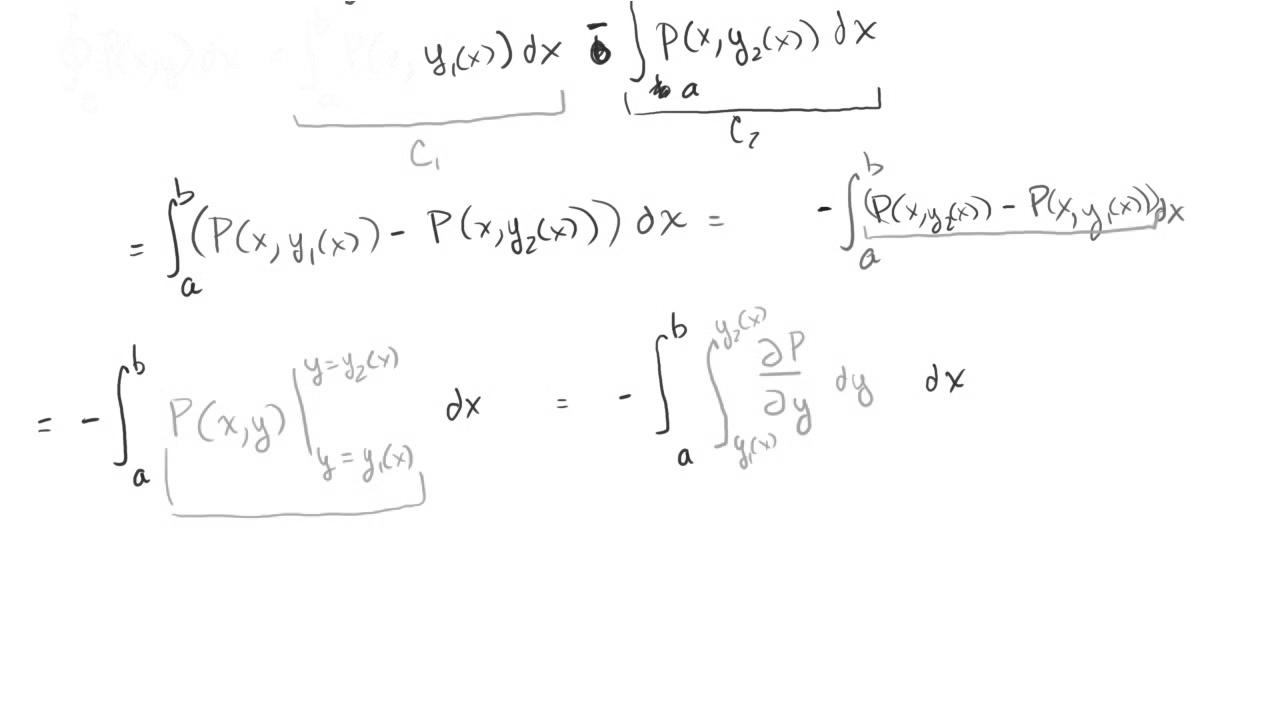 ∮_c P(x,y) dx = ∫_a^b P(x, y₁(x)) dx - ∫_a P(x, y₂(x)) dx
C₁ C₂
= ∫_a^b (P(x, y₁(x)) - P(x, y₂(x))) dx = - ∫_a^b (P(x, y₂(x)) - P(x, y₁(x))) dx
= - ∫_a^b P(x,y) |_{y = y₁(x)}^{y = y₂(x)} dx = - ∫_a^b ∫_{y₁(x)}^{y₂(x)} ∂P/∂y dy dx